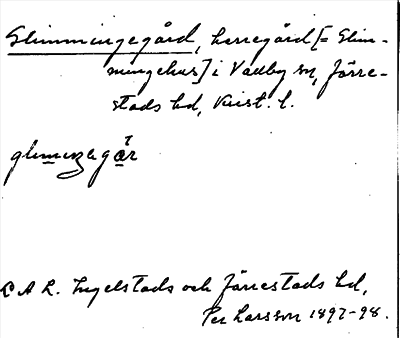 Glimmingegård, herregård [= Glim-
mingehus] i Vallby sn, Järre-
stads hd, Krist. l.
glimiŋegår
L A L. Ingelstads och Järrestads hd,
Per Larsson 1897-98.